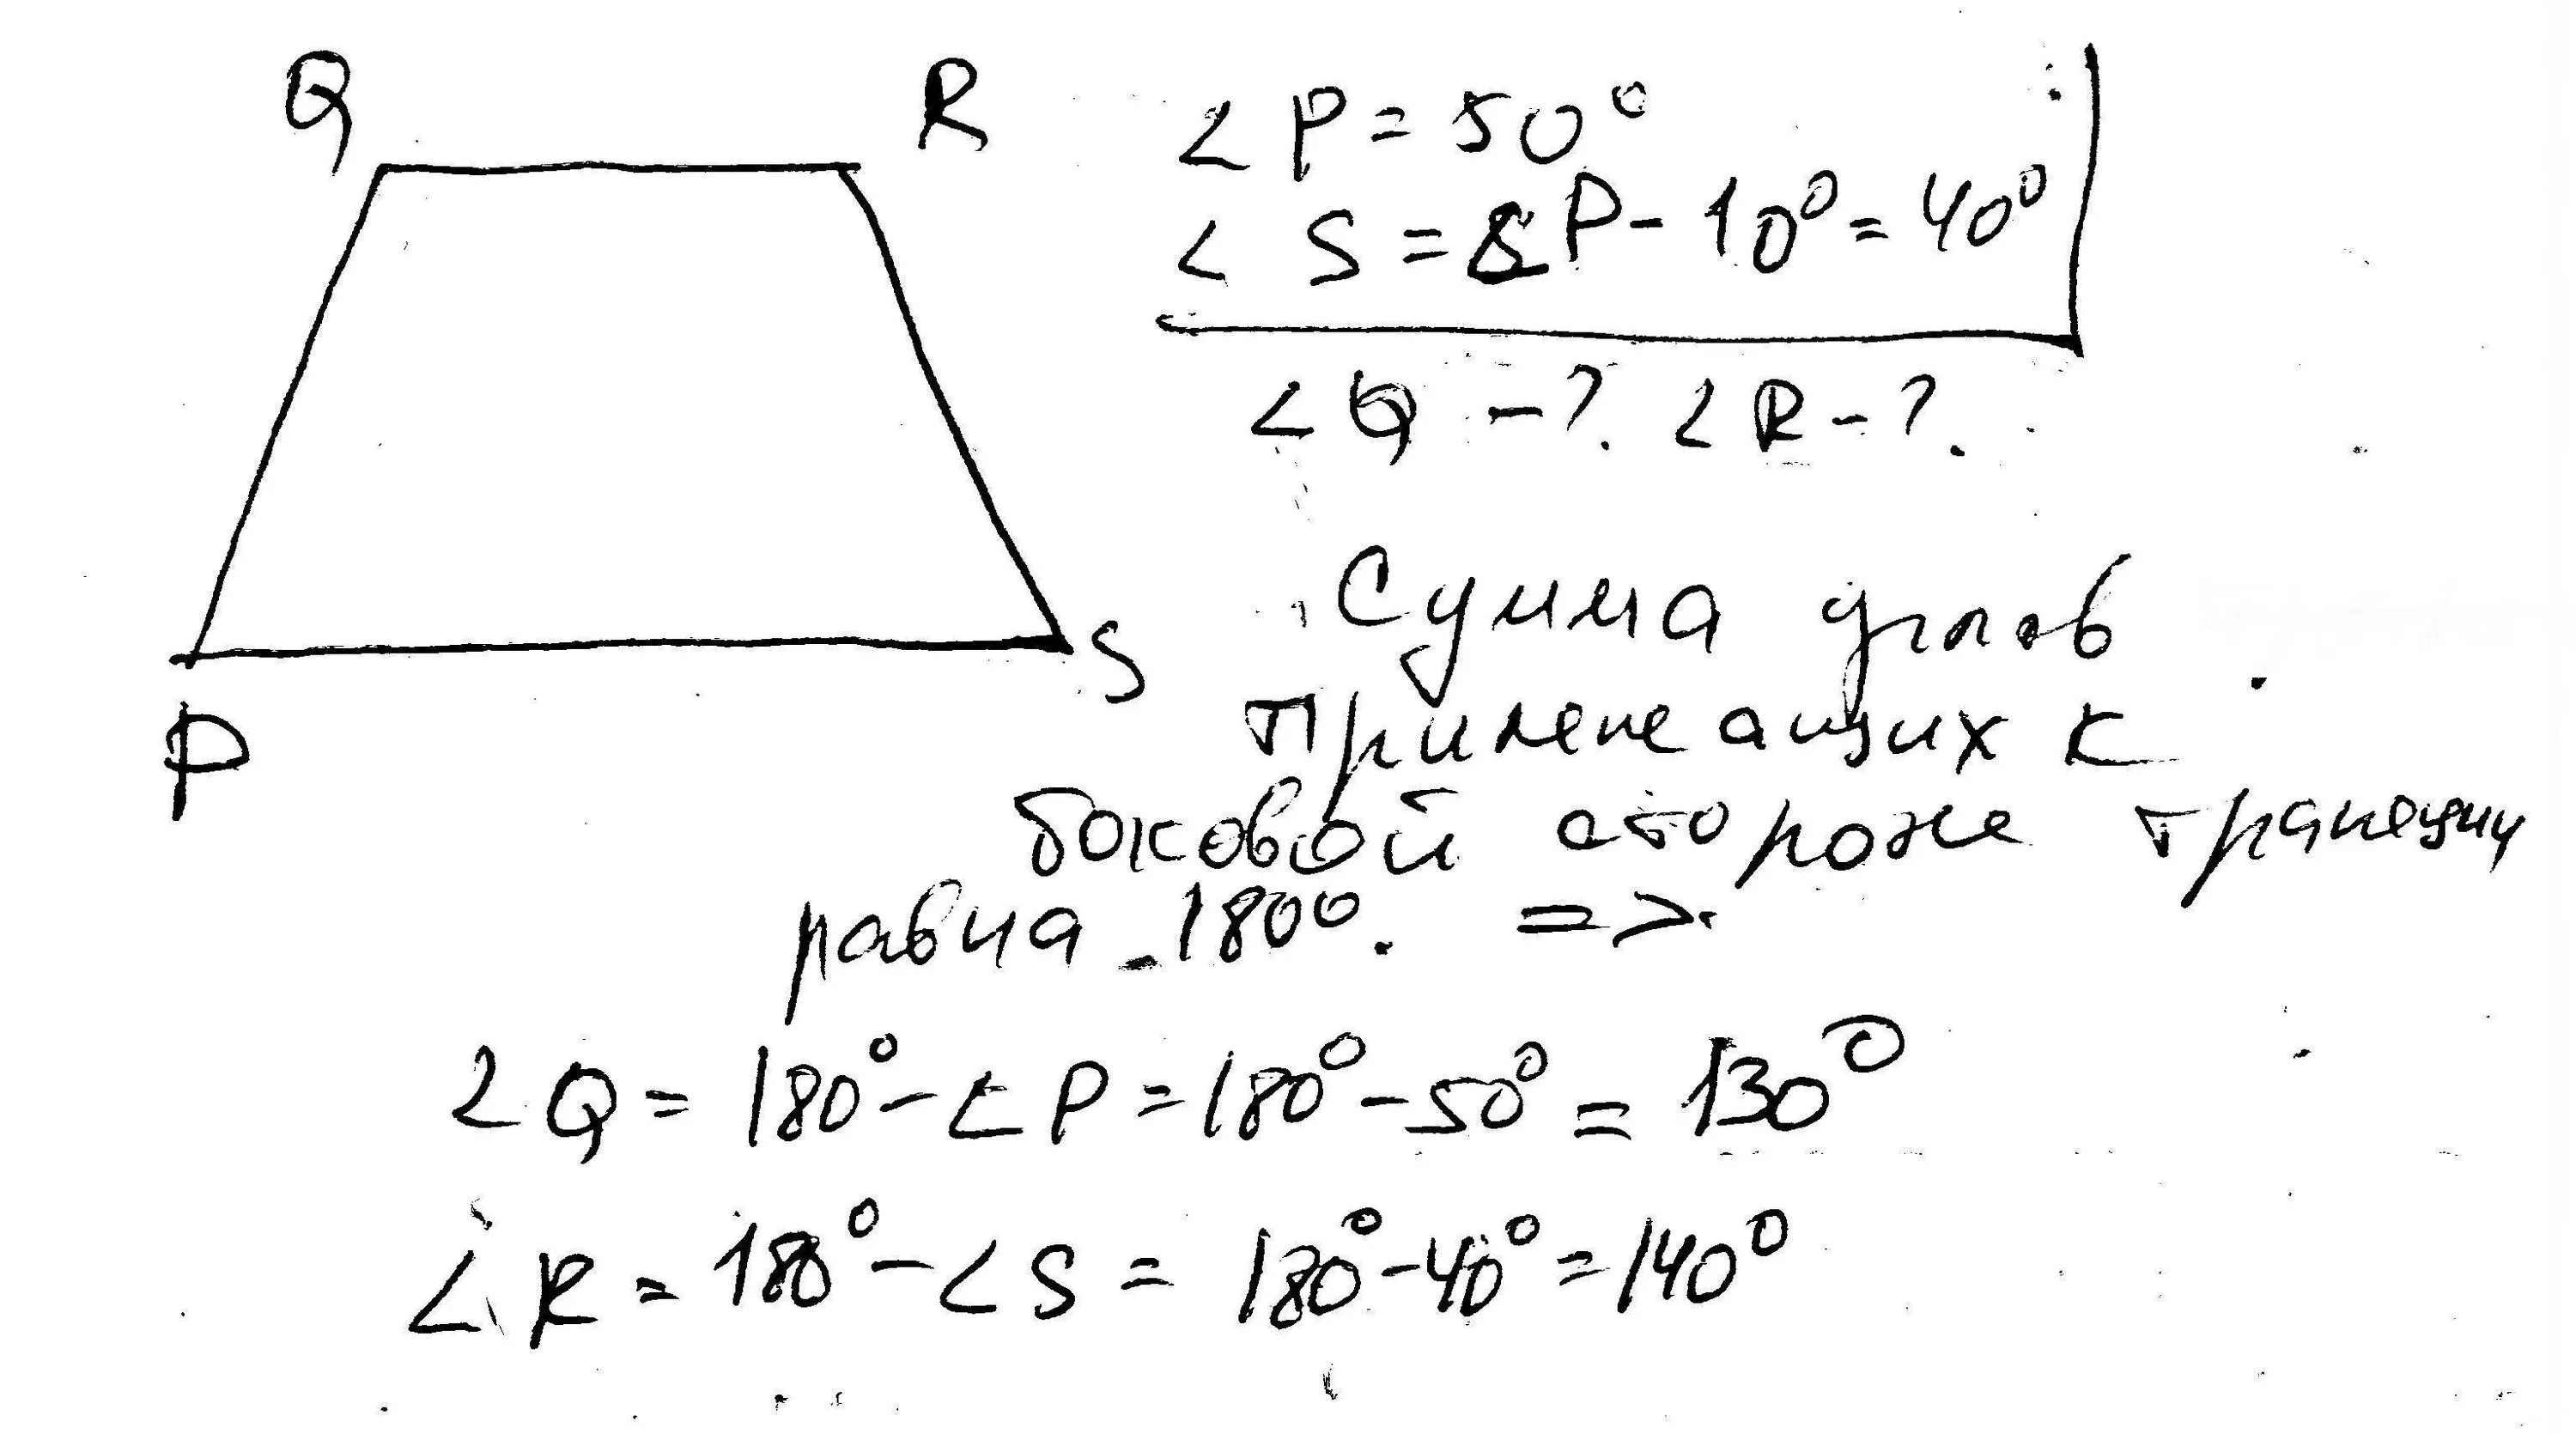 Q R
∠P = 50°
∠S = ∠P - 10° = 40°
∠Q - ?. ∠R - ?.
P S
Сумма углов
прилежащих к
боковой стороне трапеции
равна - 180°. =>
∠Q = 180° - ∠P = 180° - 50° = 130°
∠R = 180° - ∠S = 180° - 40° = 140°